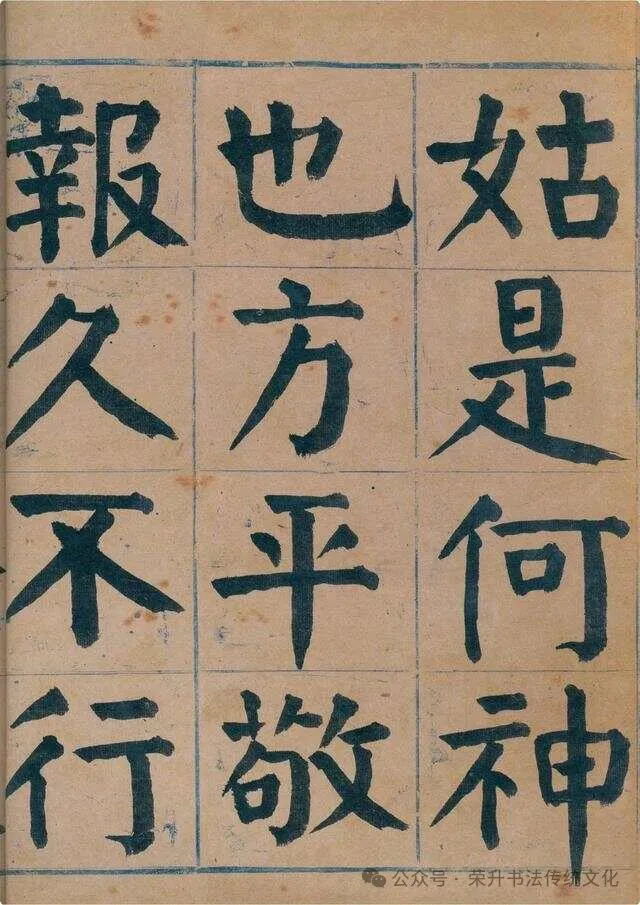 姑是何神
也方平敬
報久不行
公众号·荣升书法传统文化